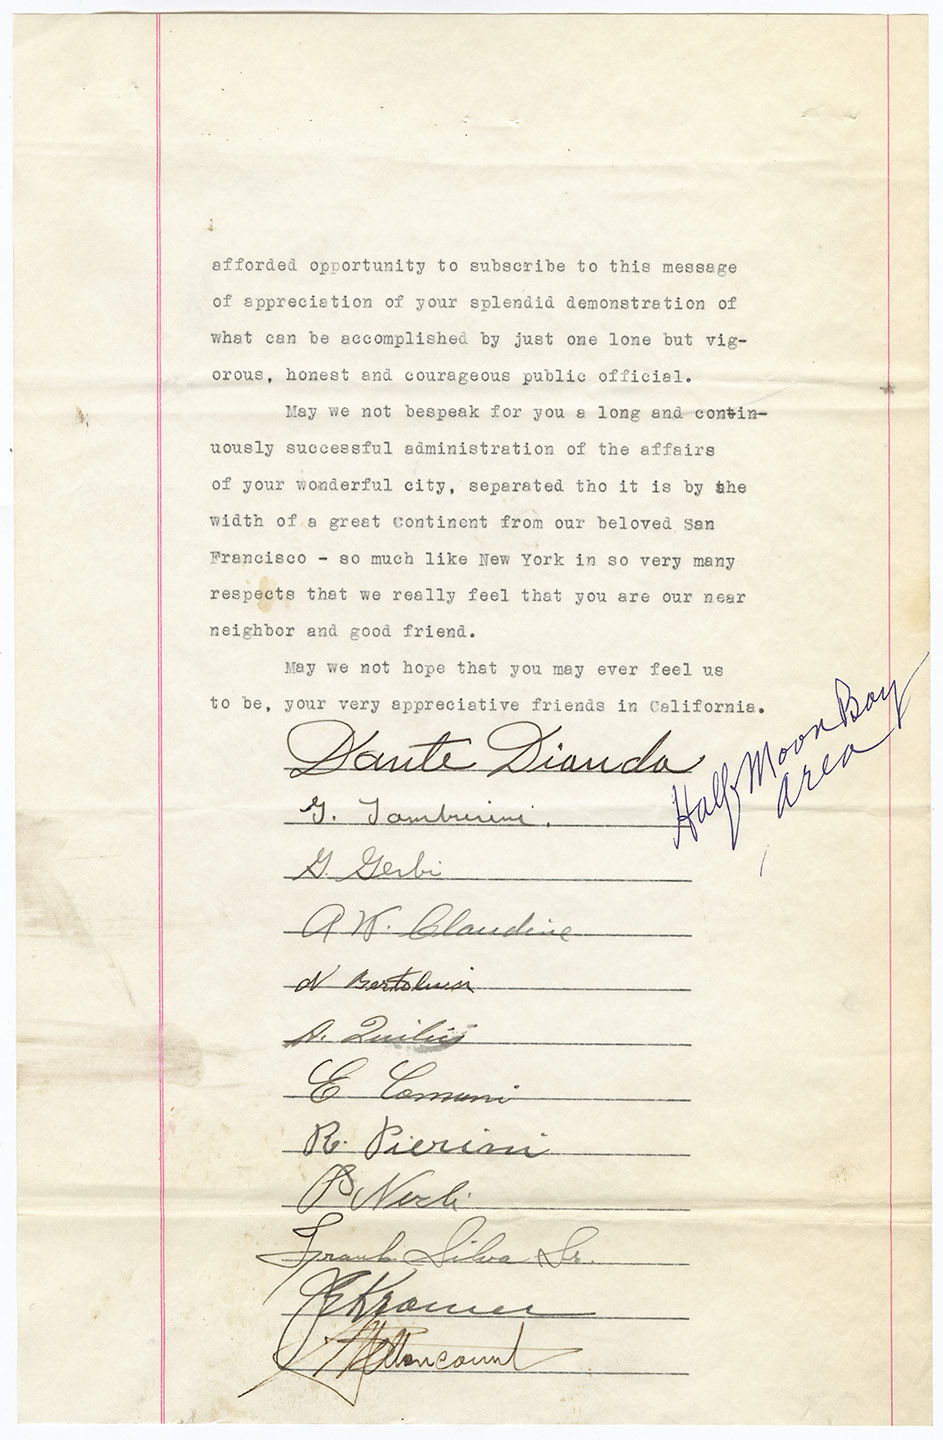 afforded opportunity to subscribe to this message
of appreciation of your splendid demonstration of
what can be accomplished by just one lone but vig-
orous, honest and courageous public official.
May we not bespeak for you a long and contin-
uously successful administration of the affairs
of your wonderful city, separated tho it is by the
width of a great Continent from our beloved San
Francisco - so much like New York in so very many
respects that we really feel that you are our near
neighbor and good friend.
May we not hope that you may ever feel us
to be, your very appreciative friends in California.
Half Moon Bay
Area
Dante Dianda
G. Tamburini.
G. Gerbi
A W. Claudine
N Bertolucci
A. Quilici
E Comuni
R. Pierini
P Nerli
Frank Silva Sr.
Kramer
Bettencourt